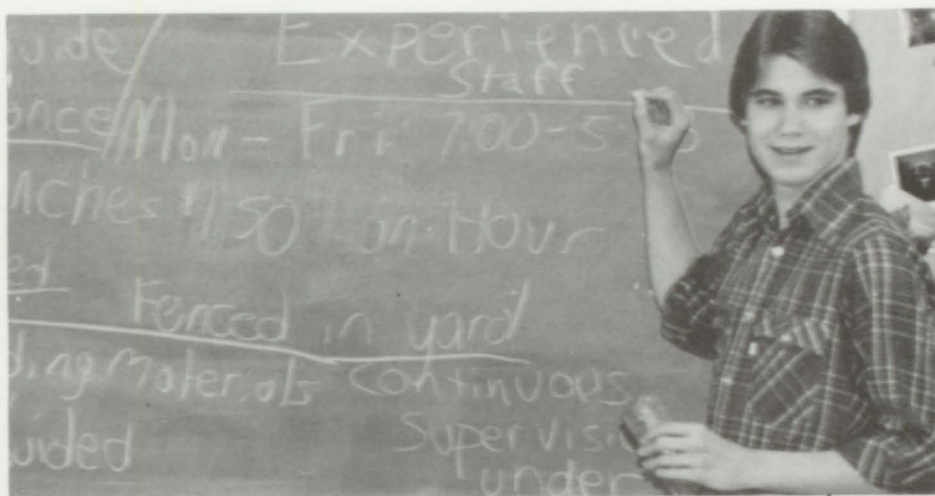 uide / Experienced
Staff
ance Mon - Fri 7:00 - 5:
nches $1.50 an Hour
ed
Fenced in yard
ding materials Continuous
Supervisi
uided
under